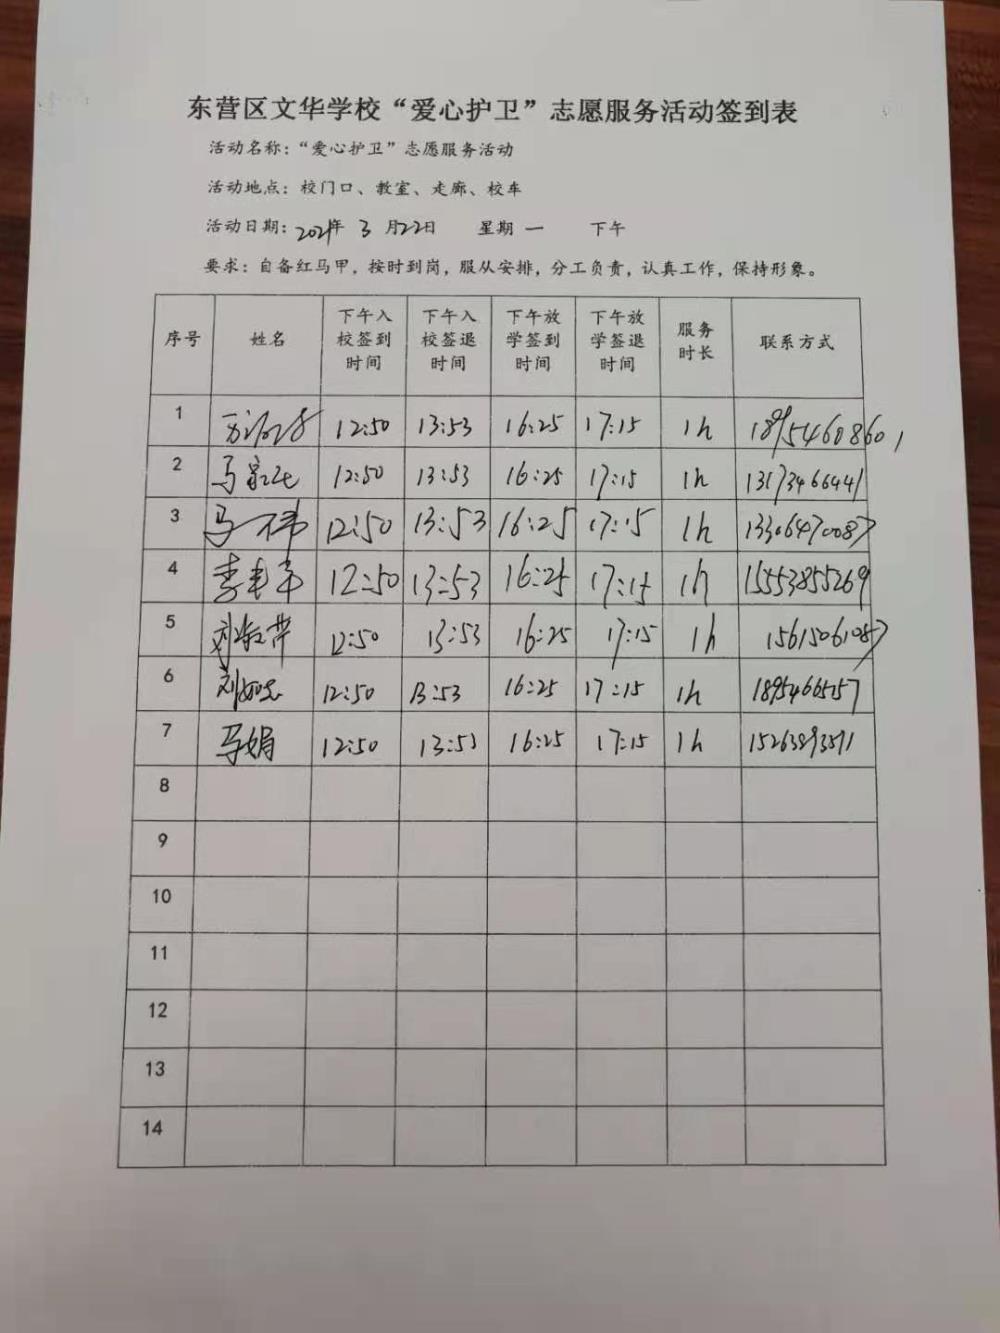 东营区文华学校“爱心护卫”志愿服务活动签到表
活动名称：“爱心护卫”志愿服务活动
活动地点：校门口、教室、走廊、校车
活动日期：2021年 3 月22日 星期 一 下午
要求：自备红马甲，按时到岗，服从安排，分工负责，认真工作，保持形象。
序号 姓名 下午入校签到时间 下午入校签退时间 下午放学签到时间 下午放学签退时间 服务时长 联系方式
1 12:50 13:53 16:25 17:15 1h 18954608601
2 马 12:50 13:53 16:25 17:15 1h 13173466441
3 马 12:50 13:53 16:25 17:15 1h 13306470087
4 李 12:50 13:53 16:25 17:15 1h 15553855269
5 刘 12:50 13:53 16:25 17:15 1h 15615061087
6 刘 12:50 13:53 16:25 17:15 1h
7 马娟 12:50 13:53 16:25 17:15 1h
8
9
10
11
12
13
14